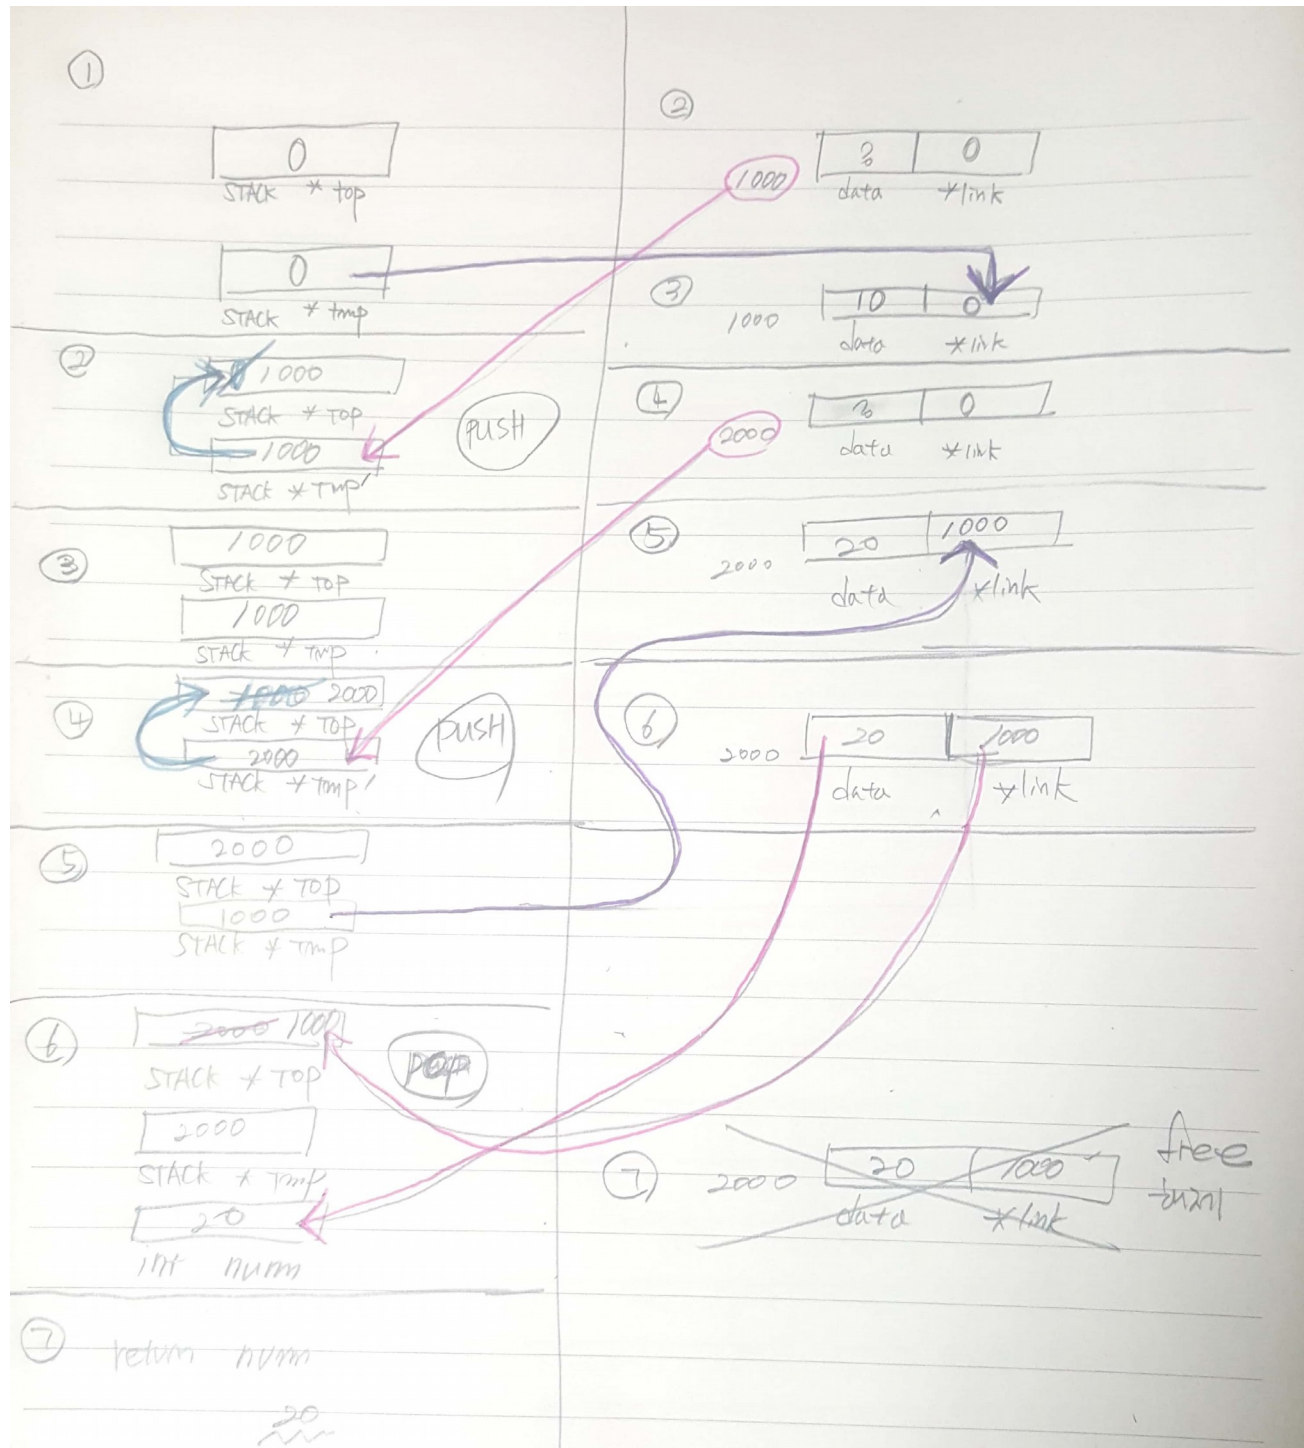 ①
0
STACK * top
0
STACK * tmp
②
1000
STACK * TOP
1000
STACK * Tmp'
PUSH
③
1000
STACK * TOP
1000
STACK * TMP
④
1000 2000
STACK * TOP
2000
STACK * Tmp'
PUSH
⑤
2000
STACK * TOP
1000
STACK * TMP
⑥
2000 1000
STACK * TOP
POP
2000
STACK * TMP
20
int num
⑦
return num
20
②
1000
? 0
data *link
③
1000
10 0
data *link
④
2000
? 0
data *link
⑤
2000
20 1000
data *link
⑥
2000
20 1000
data *link
⑦
2000
20 1000
data *link
free
해제